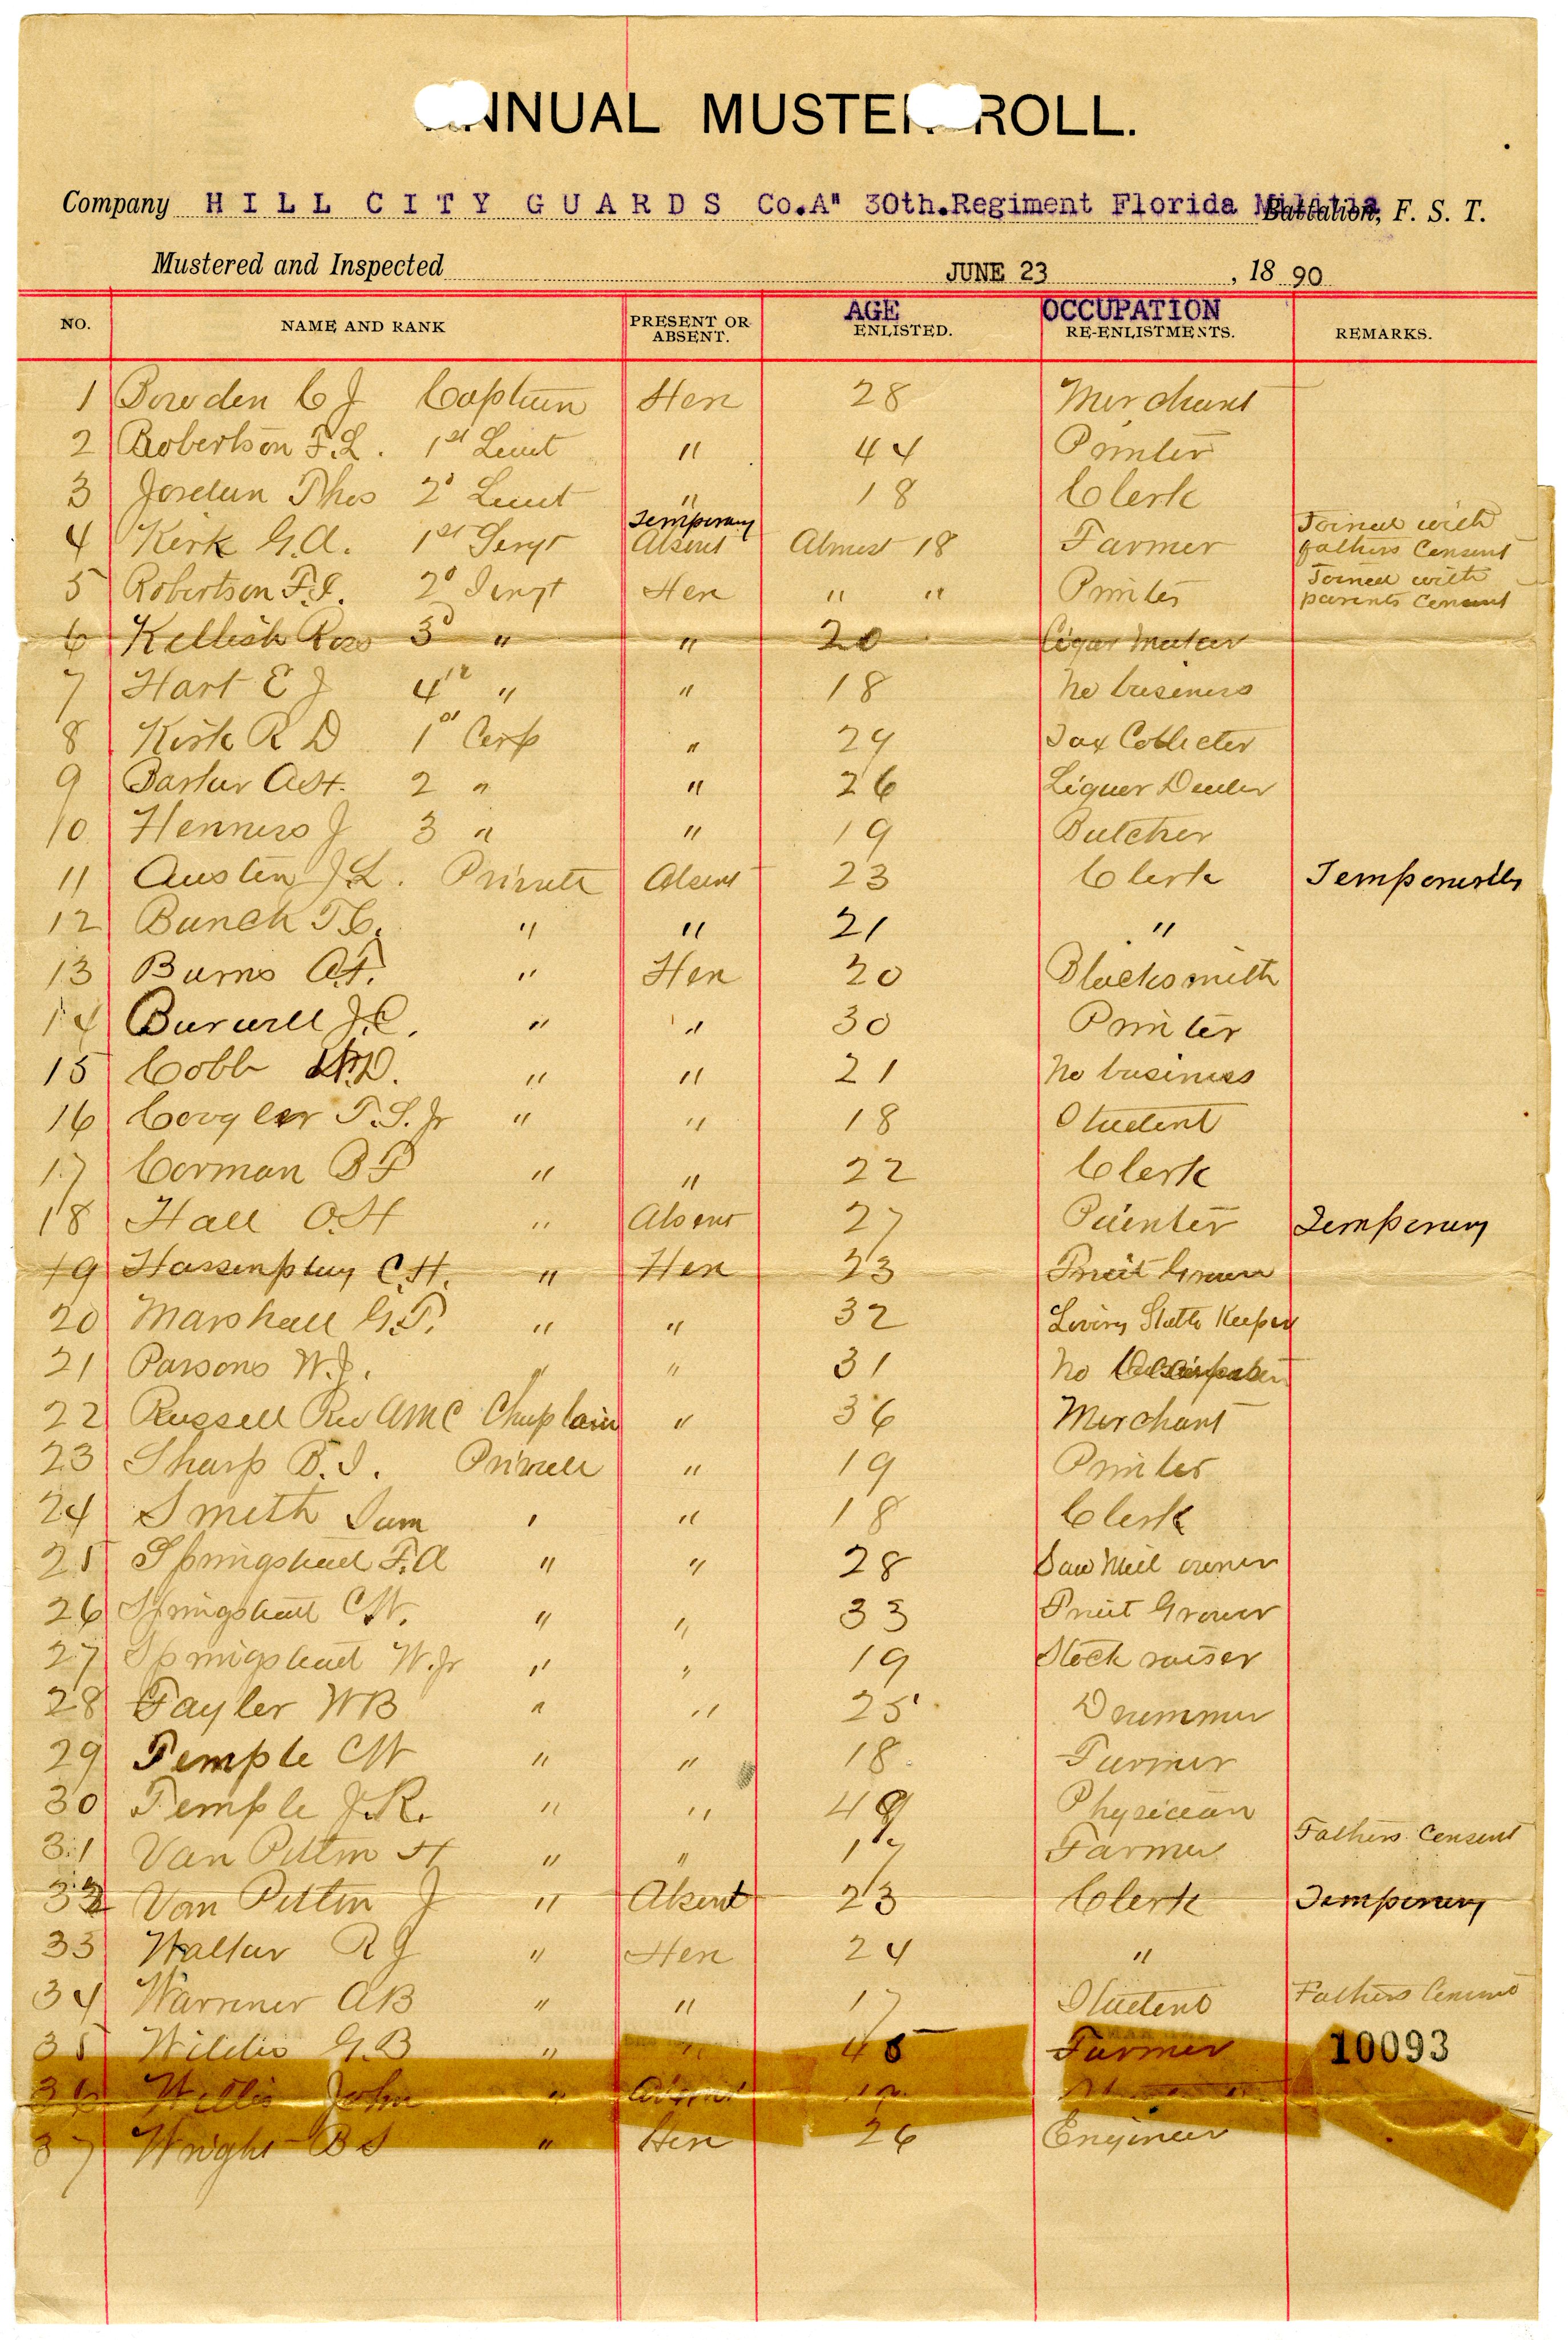 ANNUAL MUSTER ROLL.
Company HILL CITY GUARDS Co.A" 30th.Regiment Florida Militia Battalion, F. S. T.
Mustered and Inspected JUNE 23, 1890
NO. NAME AND RANK PRESENT OR ABSENT. AGE ENLISTED. OCCUPATION RE-ENLISTMENTS. REMARKS.
1 C J Captain Here 28 Merchant
2 Robertson F.L. 1st Lieut " 44 Printer
3 Thos 2d Lieut " 18 Clerk
4 Kirk G.A. 1st Sergt Temporary Absent Almost 18 Farmer Joined with fathers Consent
5 Robertson F.J. 2d Sergt Here " " Printer Joined with parents Consent
6 3d " " 20 Cigar Maker
7 Hart E J 4th " " 18 No business
8 Kirk R D 1st Corp " 29 Tax Collector
9 2 " " 26 Liquor Dealer
10 J 3 " " 19 Butcher
11 Austin J.L. Private Absent 23 Clerk Temporarily
12 Bunch T.C. " " 21 "
13 Burns A.F. " Here 20 Blacksmith
14 Burwell J.C. " " 30 Printer
15 Cobb " " 21 No business
16 Coogler T.S. Jr " " 18 Student
17 Corman B F " " 22 Clerk
18 Hall O.H " Absent 27 Painter Temporary
19 Hassenplug C.H. " Here 23 Fruit Grower
20 Marshall G.T. " " 32 Livery Stable Keeper
21 Parsons W.J. " " 31 No Occupation
22 Russell Rev AMC Chaplain " 36 Merchant
23 Sharp B.J. Private " 19 Printer
24 Smith Sam " " 18 Clerk
25 Springstead F.A " " 28 Saw Mill owner
26 Springstead CW. " " 33 Fruit Grower
27 Springstead W. Jr " " 19 Stock raiser
28 Tayler WB " " 25 Drummer
29 Temple CW " " 18 Farmer
30 Temple J.R. " " 49 Physician
31 Van Pelten H " " 17 Farmer Fathers Consent
32 Van Pelten J " Absent 23 Clerk Temporary
33 R J " Here 24 "
34 Warriner AB " " 17 Student Fathers Consent
35 G.B " " 45 Farmer 10093
36 Willis John " Absent
37 Wright B S " Here 26 Engineer